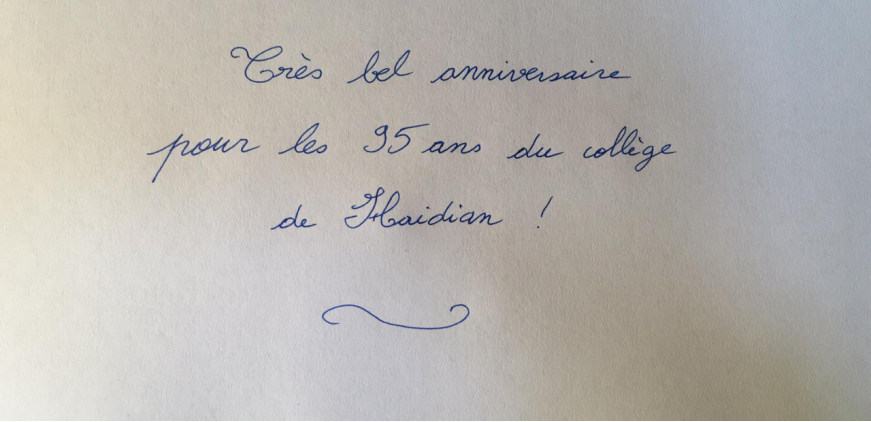 Très bel anniversaire
pour les 95 ans du collège
de Haidian !